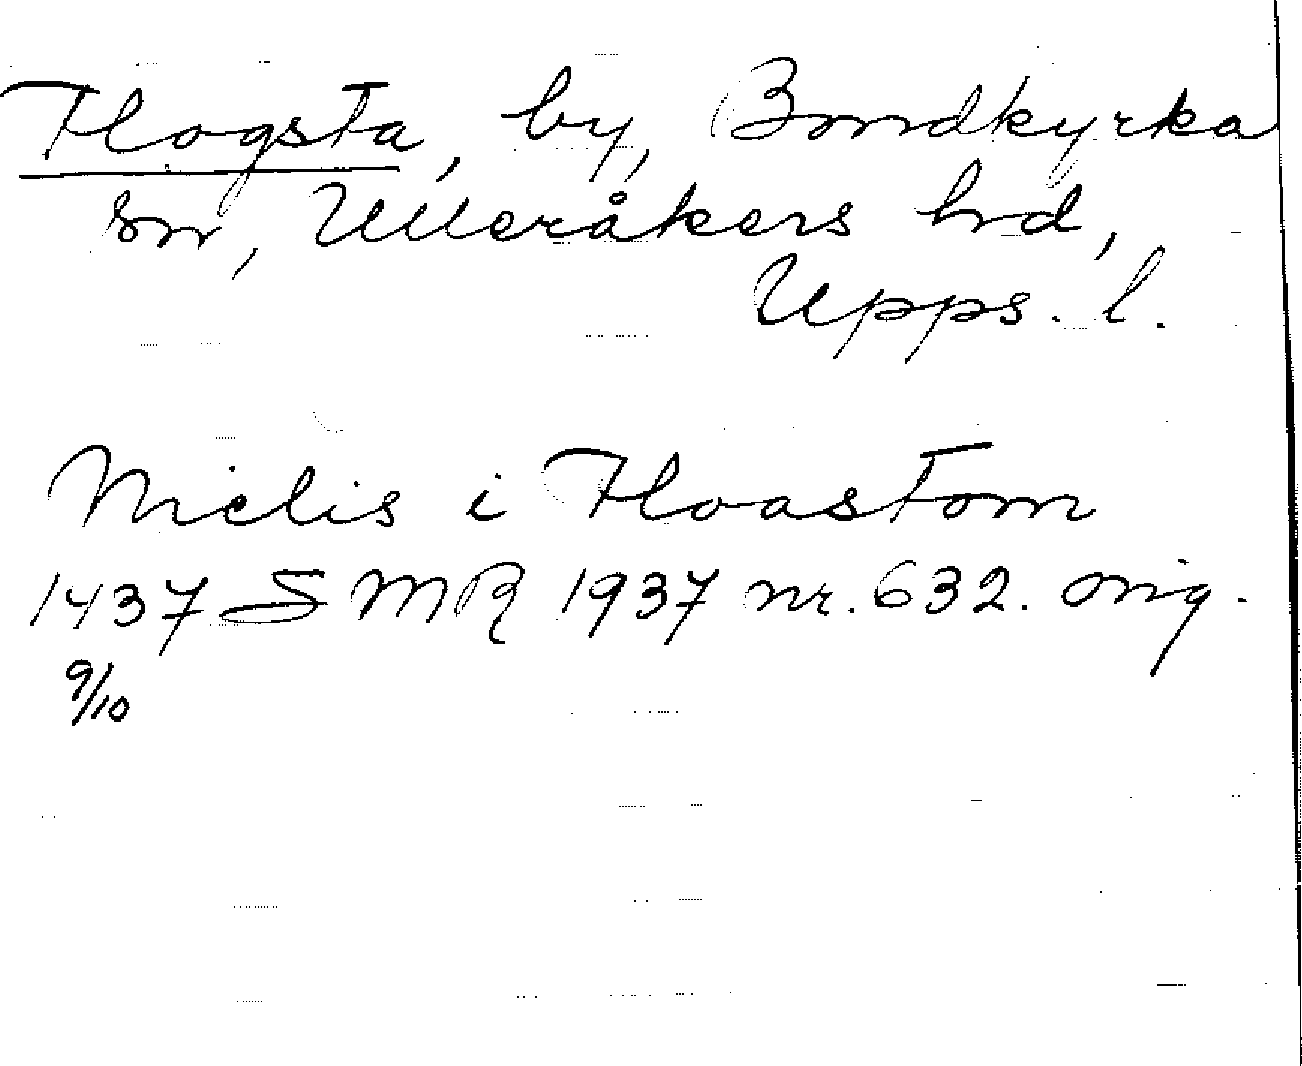 Flogsta, by, Bondkyrka
sn, Ulleråkers hd,
Upps. l.
Niclis i Floastom
1437 SMR 1937 nr. 632. orig.
9/10